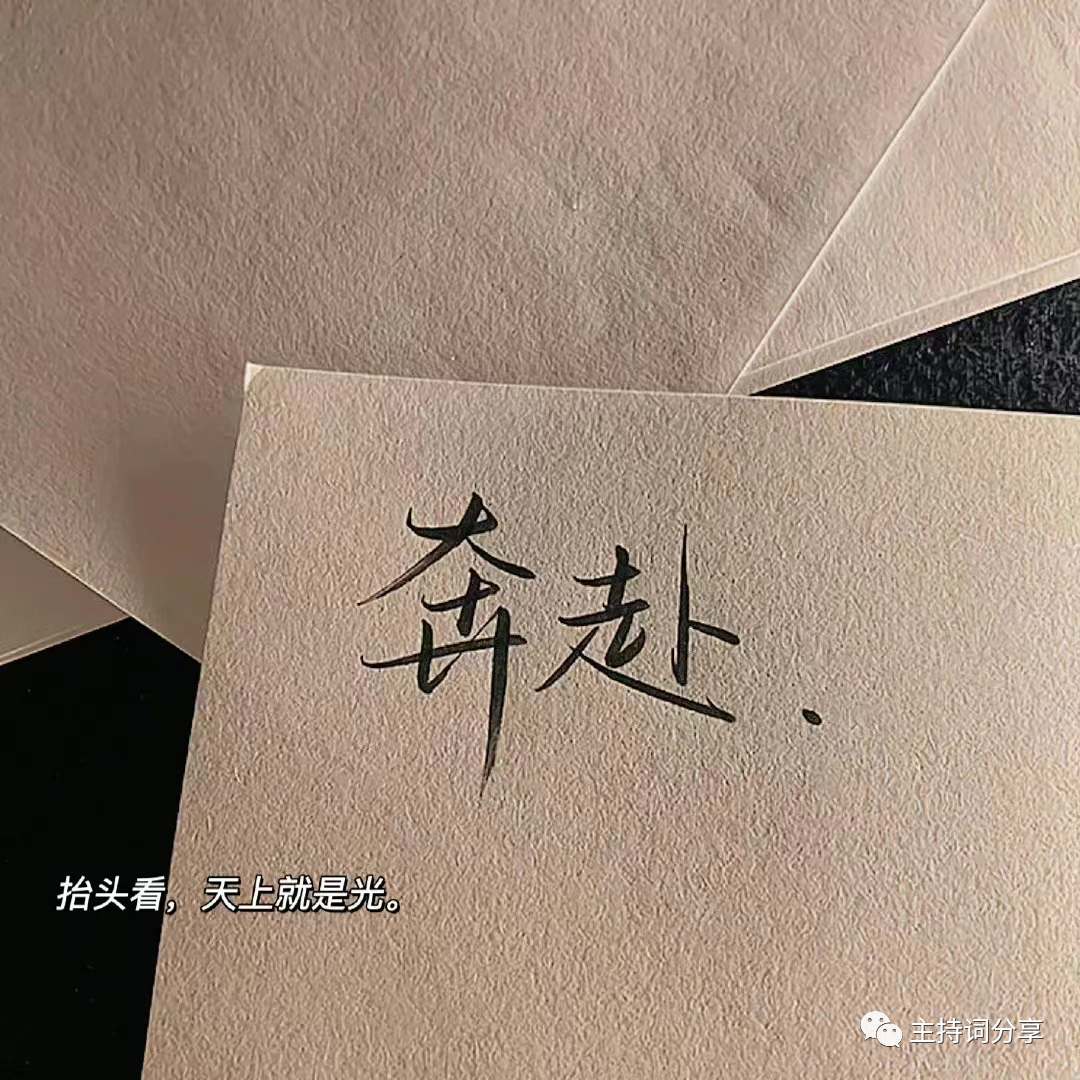 奔赴.
抬头看，天上就是光。
主持词分享